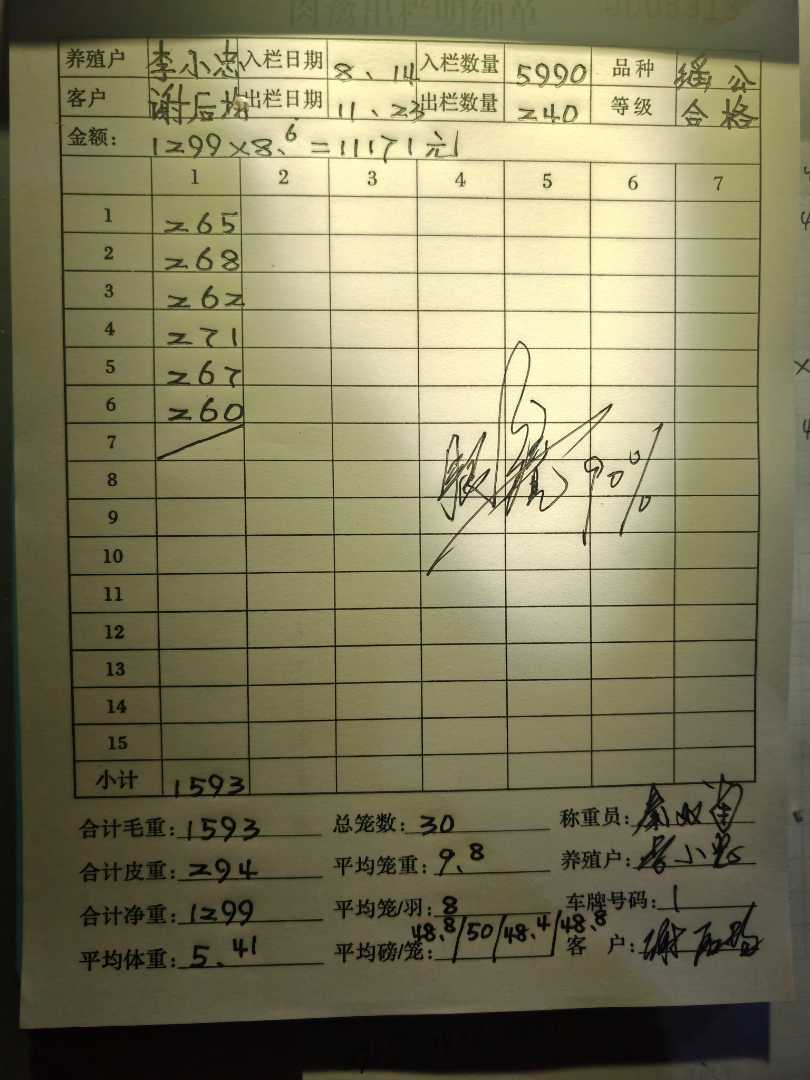 肉禽出栏明细单
养殖户 李小忠 入栏日期 8、14 入栏数量 5990 品种 瑶公
客户 谢后均 出栏日期 11、23 出栏数量 240 等级 合格
金额： 1299×8.6=11171元
1 2 3 4 5 6 7
1 265
2 268
3 262
4 271
5 267
6 260
7
8
9 90%
10
11
12
13
14
15
小计 1593
合计毛重：1593 总笼数：30 称重员：
合计皮重：294 平均笼重：9.8 养殖户：李小忠
合计净重：1299 平均笼/羽：8 车牌号码：1
平均体重：5.41 平均磅/笼：48.8/50/48.4/48.8 客 户：